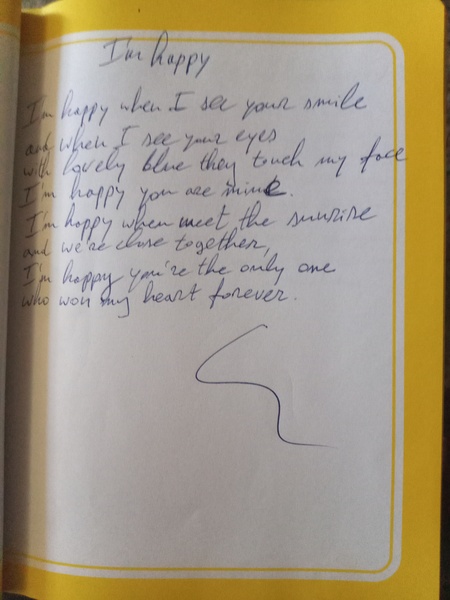 I'm happy
I'm happy when I see your smile
and when I see your eyes
with lovely blue they touch my face
I'm happy you are mine.
I'm happy when meet the sunrise
and we're close together,
I'm happy you're the only one
who won my heart forever.